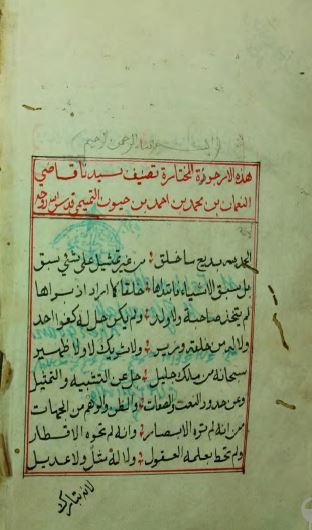 بسم الله الرحمن الرحيم
هذه الارجوزة المختارة تصنيف سيدنا قاضي
النعمان بن محمد بن احمد بن حيون التميمي قدس الله روحه
الحمد لله بديع ما خلق من غير تمثيل على شي سبق
بل سبق الاشياء فابتداها خلقا كما اراد اذ براها
لم يتخذ صاحبة ولا ولد ولم يكن جل له كفوا احد
ولا له من خلقه وزير ولا شريك لا ولا ظهير
سبحانه من ملك جليل جل عن التشبيه والتمثيل
وعن حدود النعت والصفات والظن والوهم من الجهات
من انه لم تره الابصار وانه لم تحوه الاقطار
ولم تحط بعلمه العقول ولا له مثل ولا عديل
لانه تبارك